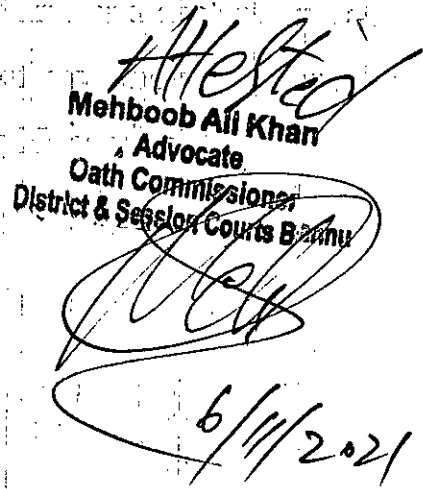 Attested
Mehboob Ali Khan
Advocate
Oath Commissioner
District & Session Courts Bannu
6/11/2021